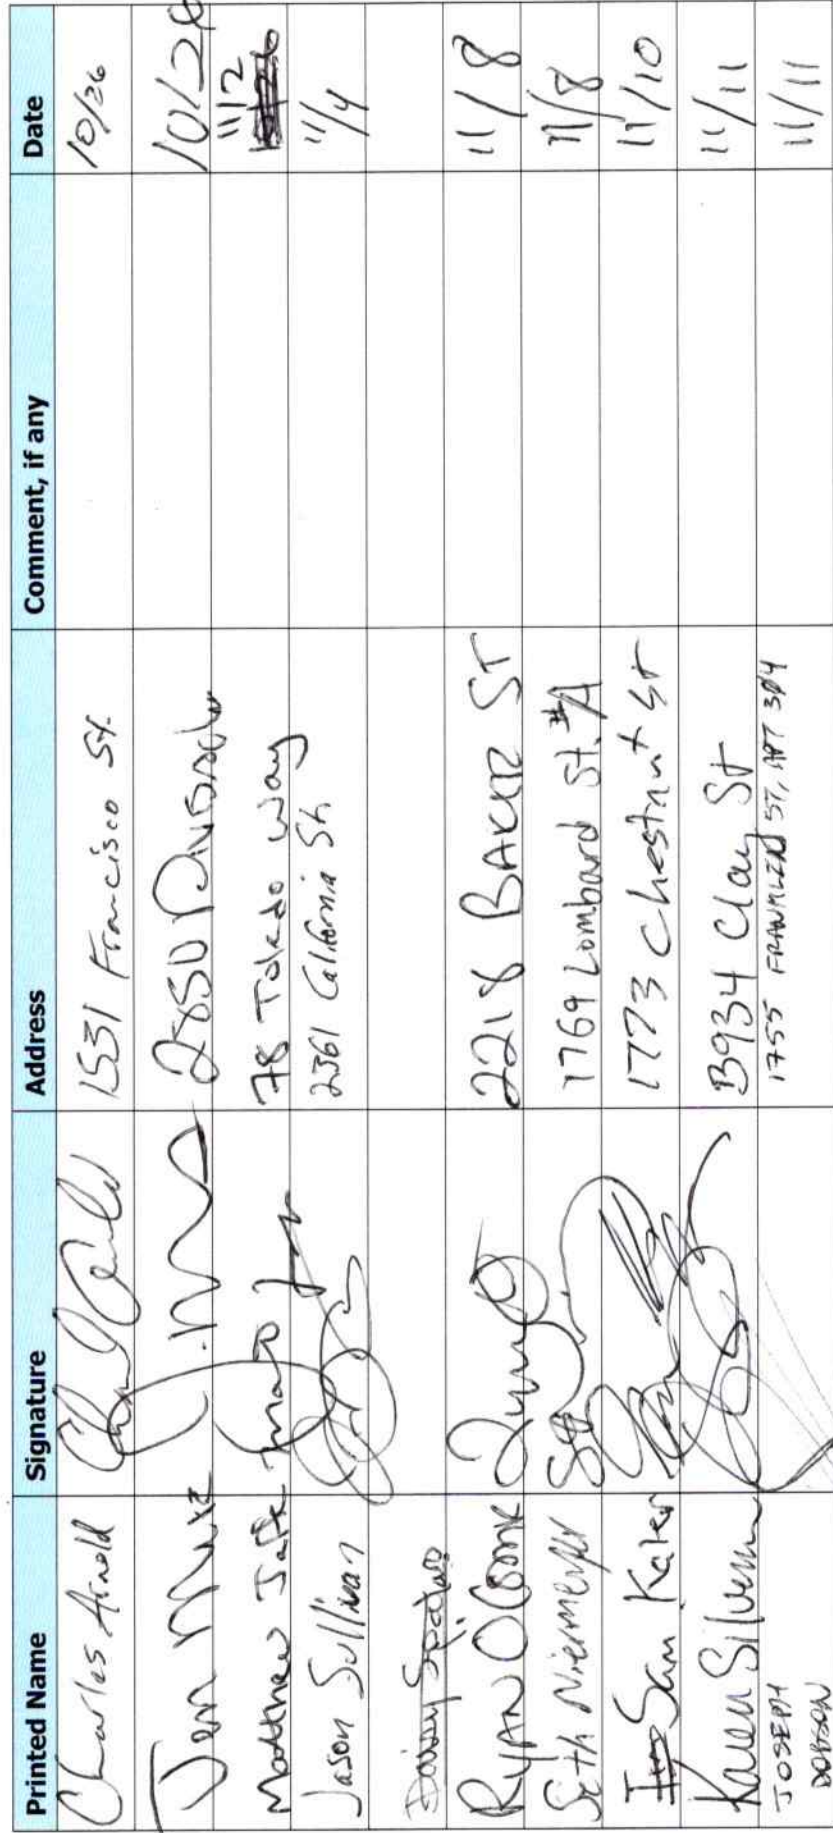 Printed Name Signature Address Comment, if any Date
Charles Arnold 1531 Francisco St. 10/26
Jen 2850 10/26
Matthew Jaffe 78 Toledo Way 11/2
Jason Sullivan 2361 California St. 11/4
Ryan 2218 BAKER ST 11/8
Seth Niermeyer 1769 Lombard St. #A 11/8
Sam Kater 1773 Chestnut St 11/10
Karen Silverman 3934 Clay St 11/11
JOSEPH DOBSON 1755 FRANKLIN ST, APT 304 11/11